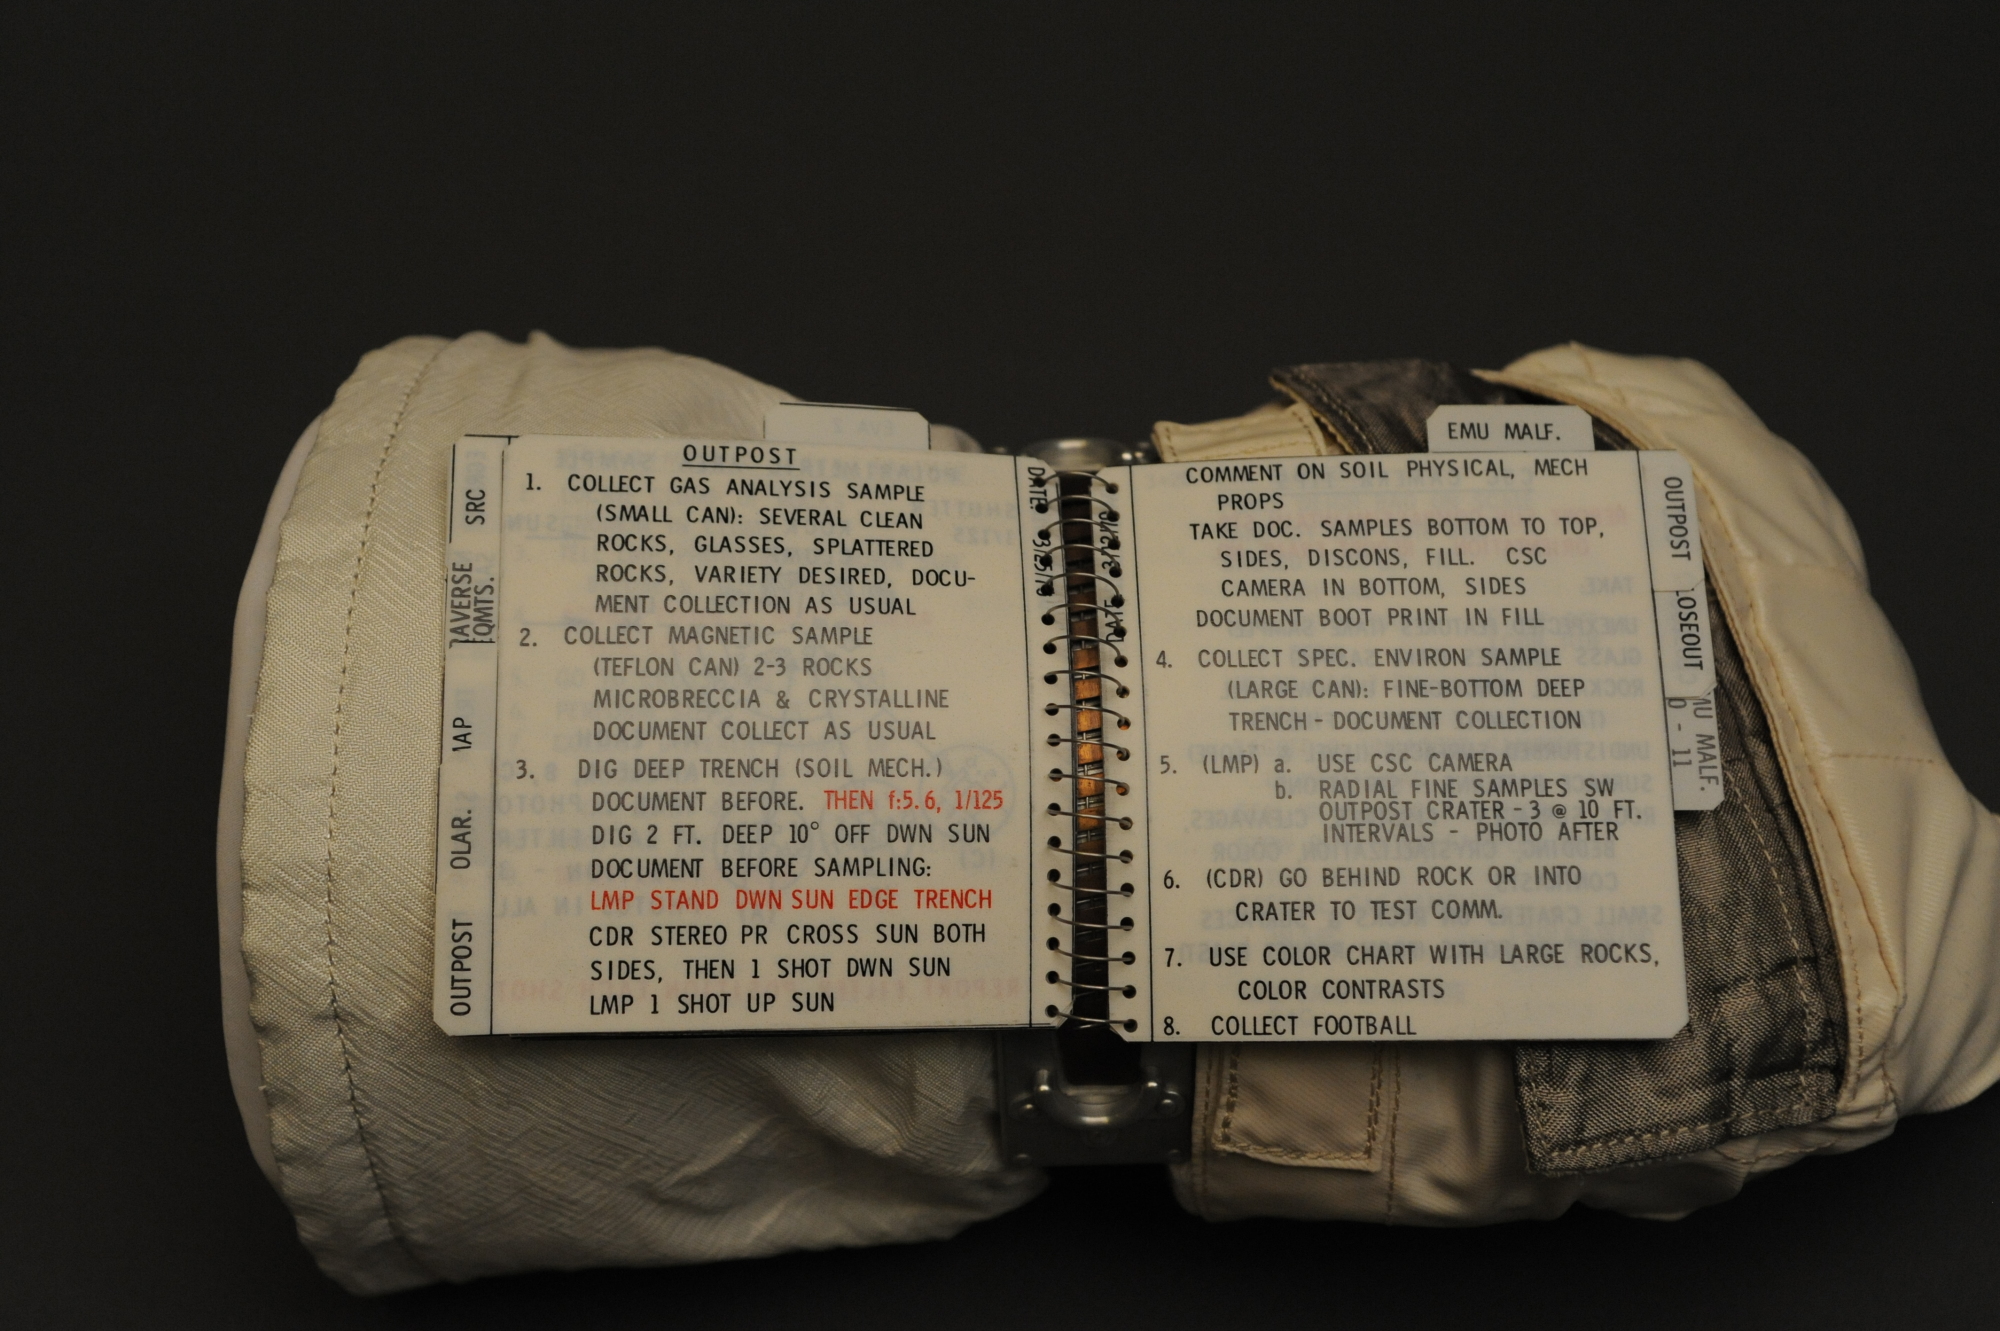 OUTPOST
1. COLLECT GAS ANALYSIS SAMPLE
(SMALL CAN): SEVERAL CLEAN
ROCKS, GLASSES, SPLATTERED
ROCKS, VARIETY DESIRED, DOCU-
MENT COLLECTION AS USUAL
2. COLLECT MAGNETIC SAMPLE
(TEFLON CAN) 2-3 ROCKS
MICROBRECCIA & CRYSTALLINE
DOCUMENT COLLECT AS USUAL
3. DIG DEEP TRENCH (SOIL MECH.)
DOCUMENT BEFORE. THEN f:5.6, 1/125
DIG 2 FT. DEEP 10° OFF DWN SUN
DOCUMENT BEFORE SAMPLING:
LMP STAND DWN SUN EDGE TRENCH
CDR STEREO PR CROSS SUN BOTH
SIDES, THEN 1 SHOT DWN SUN
LMP 1 SHOT UP SUN
SRC
QMTS.
OLAR.
OUTPOST
DATE:
DATE
EMU MALF.
COMMENT ON SOIL PHYSICAL, MECH
PROPS
TAKE DOC. SAMPLES BOTTOM TO TOP,
SIDES, DISCONS, FILL. CSC
CAMERA IN BOTTOM, SIDES
DOCUMENT BOOT PRINT IN FILL
4. COLLECT SPEC. ENVIRON SAMPLE
(LARGE CAN): FINE-BOTTOM DEEP
TRENCH - DOCUMENT COLLECTION
5. (LMP) a. USE CSC CAMERA
b. RADIAL FINE SAMPLES SW
OUTPOST CRATER - 3 @ 10 FT.
INTERVALS - PHOTO AFTER
6. (CDR) GO BEHIND ROCK OR INTO
CRATER TO TEST COMM.
7. USE COLOR CHART WITH LARGE ROCKS,
COLOR CONTRASTS
8. COLLECT FOOTBALL
OUTPOST
LOSEOUT
MALF.
- 11